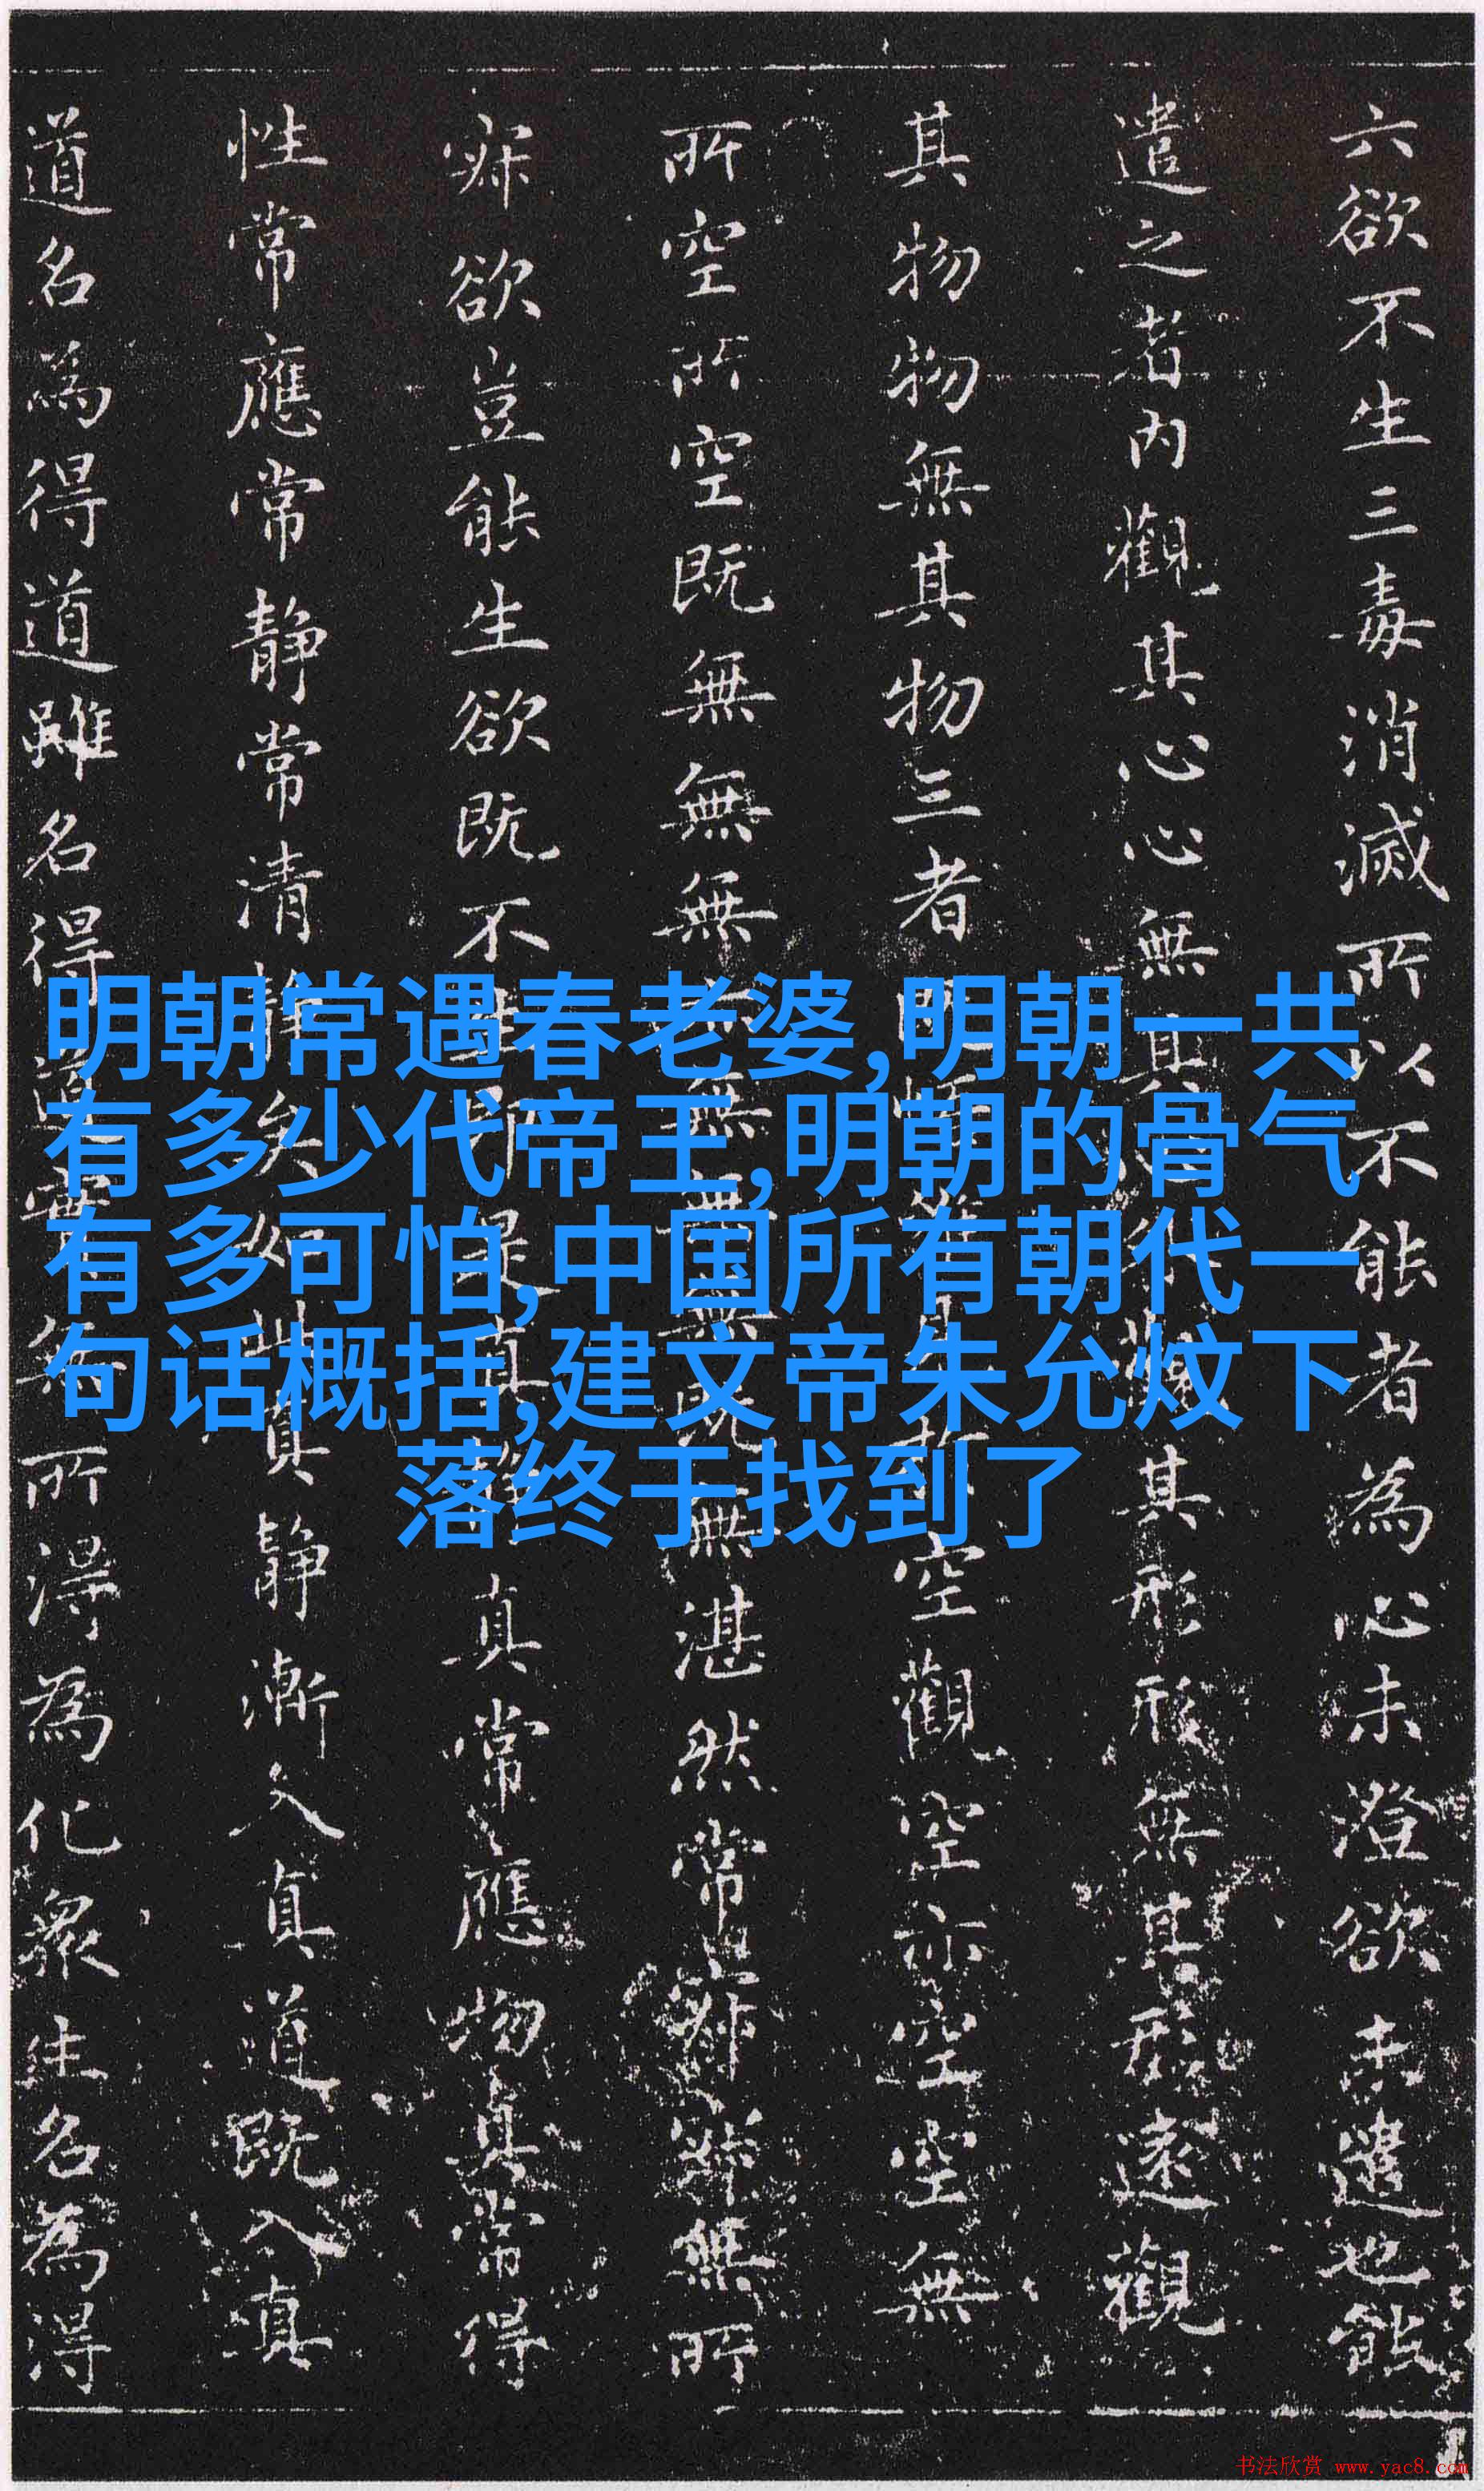 六欲不生三毒消滅所以不能者為心未澄欲未遣也能
遣之者內觀其心心無其心外觀其形形無其形遠觀
其物物無其物三者
空觀空亦空空無
所空所空既無無無亦無無無既無湛然常寂寂無所
寂欲豈能生欲既不生即是真靜真常應物真常得
性常應常静常清靜矣如此真静漸入真道既入真
道名為得道雖名得道實無所得為化衆生名為得
明朝常遇春老婆,明朝一共
有多少代帝王,明朝的骨气
有多可怕,中国所有朝代一
句话概括,建文帝朱允炆下
落终于找到了
书法欣赏 www.yac8.com